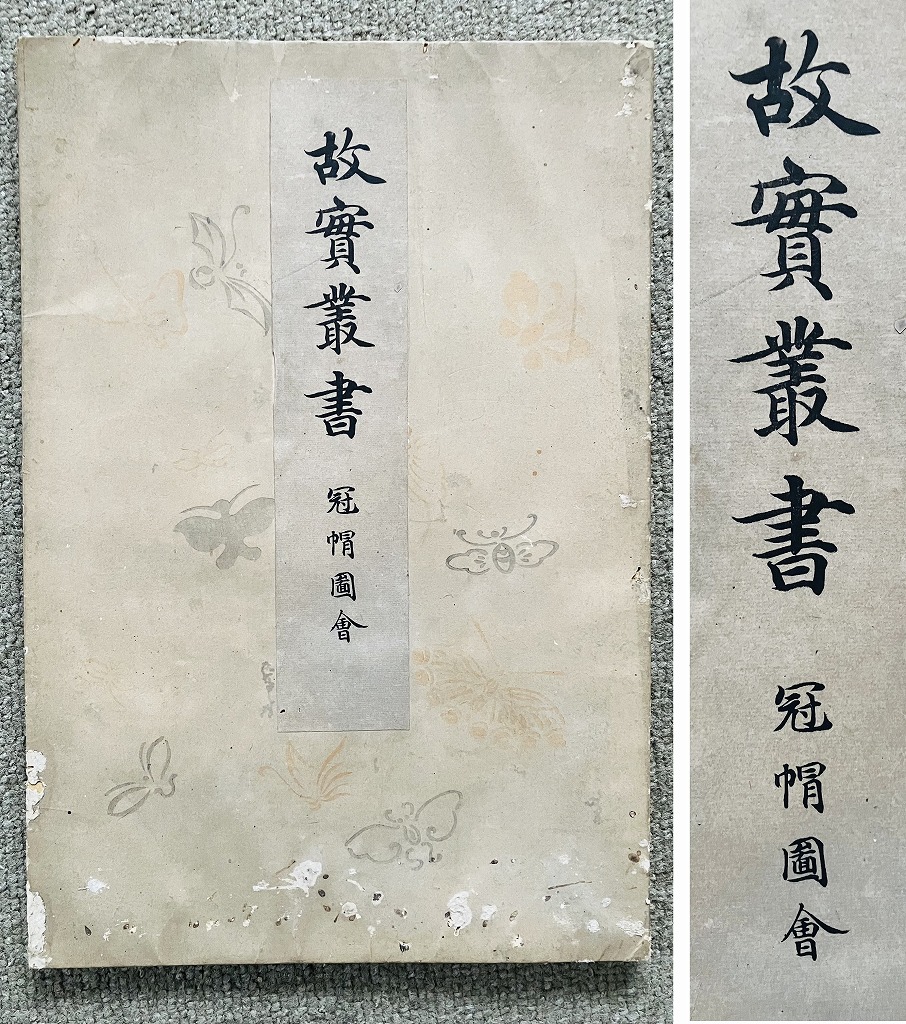 故實叢書 冠帽圖會
故實叢書 冠帽圖會